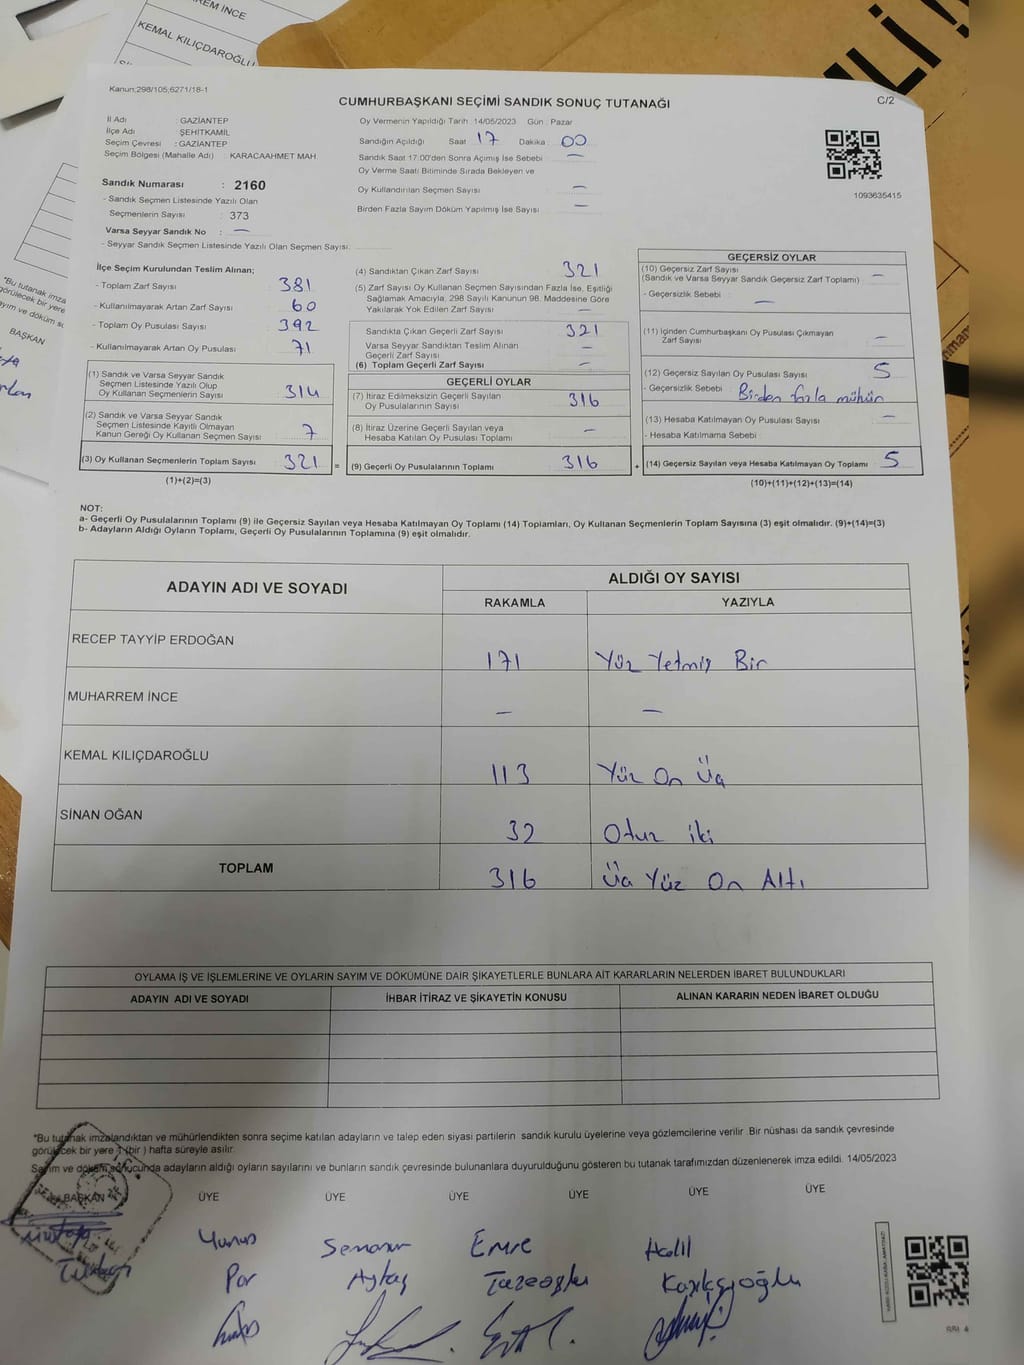 REM İNCE
KEMAL KILIÇDAROĞLU
Lİ!
Kanun:298/105;6271/18-1
CUMHURBAŞKANI SEÇİMİ SANDIK SONUÇ TUTANAĞI
C/2
İl Adı : GAZİANTEP
İlçe Adı : ŞEHİTKAMİL
Seçim Çevresi : GAZİANTEP
Seçim Bölgesi (Mahalle Adı) : KARACAAHMET MAH.
Oy Vermenin Yapıldığı Tarih :14/05/2023 Gün : Pazar
Sandığın Açıldığı Saat 17 Dakika 00
Sandık Saat 17:00'den Sonra Açımış İse Sebebi —
Oy Verme Saati Bitiminde Sırada Bekleyen ve
Oy Kullandırılan Seçmen Sayısı —
Birden Fazla Sayım Döküm Yapılmış İse Sayısı —
1093635415
Sandık Numarası : 2160
- Sandık Seçmen Listesinde Yazılı Olan
Seçmenlerin Sayısı : 373
Varsa Seyyar Sandık No : —
- Seyyar Sandık Seçmen Listesinde Yazılı Olan Seçmen Sayısı:
İlçe Seçim Kurulundan Teslim Alınan;
- Toplam Zarf Sayısı 381
- Kullanılmayarak Artan Zarf Sayısı 60
- Toplam Oy Pusulası Sayısı 392
- Kullanılmayarak Artan Oy Pusulası 71
(1) Sandık ve Varsa Seyyar Sandık
Seçmen Listesinde Yazılı Olup
Oy Kullanan Seçmenlerin Sayısı 314
(2) Sandık ve Varsa Seyyar Sandık
Seçmen Listesinde Kayıtlı Olmayan
Kanun Gereği Oy Kullanan Seçmen Sayısı 7
(3) Oy Kullanan Seçmenlerin Toplam Sayısı 321 =
(1)+(2)=(3)
(4) Sandıktan Çıkan Zarf Sayısı 321
(5) Zarf Sayısı Oy Kullanan Seçmen Sayısından Fazla İse, Eşitliği
Sağlamak Amacıyla, 298 Sayılı Kanunun 98. Maddesine Göre
Yakılarak Yok Edilen Zarf Sayısı —
Sandıkta Çıkan Geçerli Zarf Sayısı 321
Varsa Seyyar Sandıktan Teslim Alınan
Geçerli Zarf Sayısı —
(6) Toplam Geçerli Zarf Sayısı —
GEÇERLİ OYLAR
(7) İtiraz Edilmeksizin Geçerli Sayılan
Oy Pusulalarının Sayısı 316
(8) İtiraz Üzerine Geçerli Sayılan veya
Hesaba Katılan Oy Pusulası Toplamı —
(9) Geçerli Oy Pusulalarının Toplamı 316 +
GEÇERSİZ OYLAR
(10) Geçersiz Zarf Sayısı
(Sandık ve Varsa Seyyar Sandık Geçersiz Zarf Toplamı) —
- Geçersizlik Sebebi —
(11) İçinden Cumhurbaşkanı Oy Pusulası Çıkmayan
Zarf Sayısı —
(12) Geçersiz Sayılan Oy Pusulası Sayısı 5
- Geçersizlik Sebebi Birden fazla mühür
(13) Hesaba Katılmayan Oy Pusulası Sayısı —
- Hesaba Katılmama Sebebi
(14) Geçersiz Sayılan veya Hesaba Katılmayan Oy Toplamı 5
(10)+(11)+(12)+(13)=(14)
NOT:
a- Geçerli Oy Pusulalarının Toplamı (9) ile Geçersiz Sayılan veya Hesaba Katılmayan Oy Toplamı (14) Toplamları, Oy Kullanan Seçmenlerin Toplam Sayısına (3) eşit olmalıdır. (9)+(14)=(3)
b- Adayların Aldığı Oyların Toplamı, Geçerli Oy Pusulalarının Toplamına (9) eşit olmalıdır.
ADAYIN ADI VE SOYADI
ALDIĞI OY SAYISI
RAKAMLA YAZIYLA
RECEP TAYYİP ERDOĞAN 171 Yüz Yetmiş Bir
MUHARREM İNCE — —
KEMAL KILIÇDAROĞLU 113 Yüz On Üç
SİNAN OĞAN 32 Otuz iki
TOPLAM 316 Üç Yüz On Altı
OYLAMA İŞ VE İŞLEMLERİNE VE OYLARIN SAYIM VE DÖKÜMÜNE DAİR ŞİKAYETLERLE BUNLARA AİT KARARLARIN NELERDEN İBARET BULUNDUKLARI
ADAYIN ADI VE SOYADI İHBAR İTİRAZ VE ŞİKAYETİN KONUSU ALINAN KARARIN NEDEN İBARET OLDUĞU
*Bu tutanak imzalandıktan ve mühürlendikten sonra seçime katılan adayların ve talep eden siyasi partilerin sandık kurulu üyelerine veya gözlemcilerine verilir Bir nüshası da sandık çevresinde
görülecek bir yere 1 (bir ) hafta süreyle asılır.
Sayım ve döküm sonucunda adayların aldığı oyların sayılarını ve bunların sandık çevresinde bulunanlara duyurulduğunu gösteren bu tutanak tarafımızdan düzenlenerek imza edildi. 14/05/2023
BAŞKAN ÜYE ÜYE ÜYE ÜYE ÜYE ÜYE
Yunus Semanur Emre Halil
Por Aytaş Tazeoglu
*Bu tutanak imza
görülecek bir yere
BAŞKAN